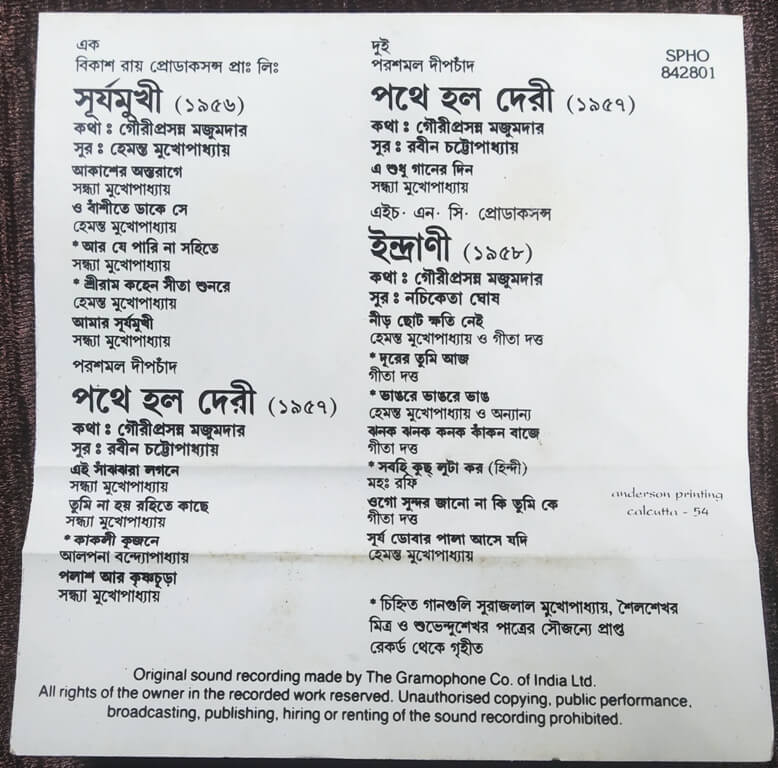 এক
বিকাশ রায় প্রোডাকসন্স প্রাঃ লিঃ
সূর্যমুখী (১৯৫৬)
কথা : গৌরীপ্রসন্ন মজুমদার
সুর : হেমন্ত মুখোপাধ্যায়
আকাশের অস্তরাগে
সন্ধ্যা মুখোপাধ্যায়
ও বাঁশীতে ডাকে সে
হেমন্ত মুখোপাধ্যায়
* আর যে পারি না সহিতে
সন্ধ্যা মুখোপাধ্যায়
* শ্রীরাম কহেন সীতা শুনরে
হেমন্ত মুখোপাধ্যায়
আমার সূর্যমুখী
সন্ধ্যা মুখোপাধ্যায়
পরশমল দীপচাঁদ
পথে হল দেরী (১৯৫৭)
কথা : গৌরীপ্রসন্ন মজুমদার
সুর : রবীন চট্টোপাধ্যায়
এই সাঁঝঝরা লগনে
সন্ধ্যা মুখোপাধ্যায়
তুমি না হয় রহিতে কাছে
সন্ধ্যা মুখোপাধ্যায়
* কাকলী কূজনে
আলপনা বন্দ্যোপাধ্যায়
পলাশ আর কৃষ্ণচূড়া
সন্ধ্যা মুখোপাধ্যায়
দুই
পরশমল দীপচাঁদ
পথে হল দেরী (১৯৫৭)
কথা : গৌরীপ্রসন্ন মজুমদার
সুর : রবীন চট্টোপাধ্যায়
এ শুধু গানের দিন
সন্ধ্যা মুখোপাধ্যায়
এইচ· এন· সি· প্রোডাকসন্স
ইন্দ্রাণী (১৯৫৮)
কথা : গৌরীপ্রসন্ন মজুমদার
সুর : নচিকেতা ঘোষ
নীড় ছোট ক্ষতি নেই
হেমন্ত মুখোপাধ্যায় ও গীতা দত্ত
* দূরের তুমি আজ
গীতা দত্ত
* ভাঙরে ভাঙরে ভাঙ
হেমন্ত মুখোপাধ্যায় ও অন্যান্য
ঝনক ঝনক কনক কাঁকন বাজে
গীতা দত্ত
* সবহি কুছ লুটা কর (হিন্দী)
মহঃ রফি
ওগো সুন্দর জানো না কি তুমি কে
গীতা দত্ত
সূর্য ডোবার পালা আসে যদি
হেমন্ত মুখোপাধ্যায়
* চিহ্নিত গানগুলি সুরাজলাল মুখোপাধ্যায়, শৈলশেখর
মিত্র ও শুভেন্দুশেখর পাত্রের সৌজন্যে প্রাপ্ত
রেকর্ড থেকে গৃহীত
SPHO
842801
anderson printing
calcutta - 54
Original sound recording made by The Gramophone Co. of India Ltd.
All rights of the owner in the recorded work reserved. Unauthorised copying, public performance,
broadcasting, publishing, hiring or renting of the sound recording prohibited.